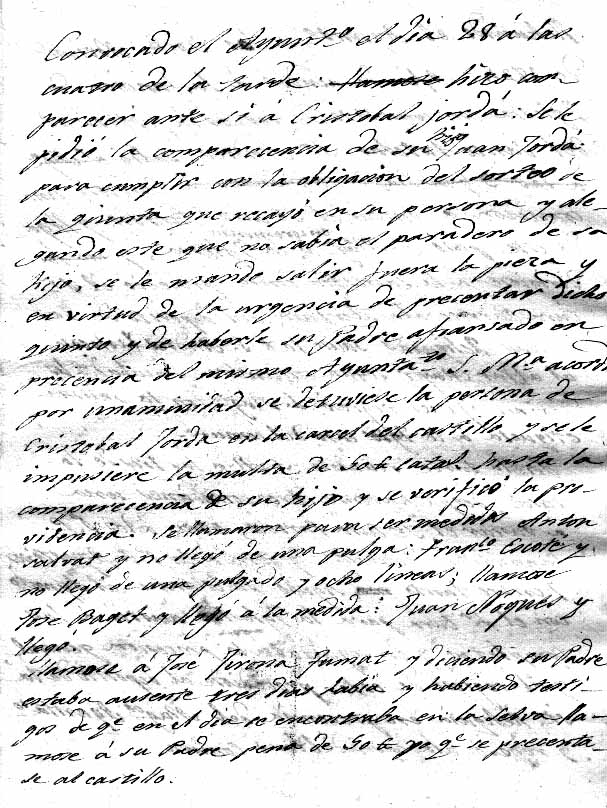 Convocado el Ayunt.o el dia 28 á las
cuatro de la tarde: llamose hizo com
parecer ante si á Cristobal Jordá: Se le
pidió la comparecencia de su hijo Juan Jordá
para cumplir con la obligacion del sorteo de
la quinta que recayó en su persona y ale-
gando este que no sabia el paradero de su
hijo, se le mando salir fuera la pieza y
en virtud de la urgencia de precentar dicho
quinto y de haberle su Padre afiansado en
precencia del mismo Ayunta.to S. M.a acordó
por unanimidad se detuviese la persona de
Cristobal Jorda en la carcel del castillo y se le
impusiere la multa de 50 ℔ catal. hasta la
comparecencia de su hijo y se verificó la pro-
videncia. Se llamaron para ser medidos Anton
Salvat y no llegó de una pulga: Fran.co Escoté y
no llegó de una pulgada y ocho lineas; llamose
Jose Baget y llegó á la medida: Juan Nogues y
llegó.
llamose á José Jirona Fumat y diciendo su Padre
estaba ausente tres dias habia y habiendo testi-
gos de q.e en el dia se encontraba en la Selva lla-
mose á su Padre pena de 50 ℔ yo q.e se precenta-
se al castillo.